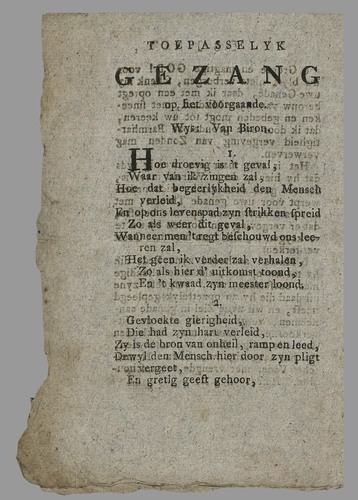 TOEPASSELYK
GEZANG
op het voorgaande.
Wyze Van Biron.
1.
Hoe droevig is 't geval,
Waar van ik zingen zal,
Hoe dat begeerlykheid den Mensch
verleid,
En op ons levenspad zyn strikken spreid
Zo als weer dit geval,
Wanneer men 't regt beschouwd ons lee-
ren zal,
Het geen ik verder zal verhalen,
Zo als hier d' uitkomst toond,
En 't kwaad zyn meester loond.
2.
Gevloekte gierigheid,
Die had zyn hart verleid,
Zy is de bron van onheil, ramp en leed,
Dewyl den Mensch hier door zyn pligt
vergeet,
En gretig geeft gehoor,